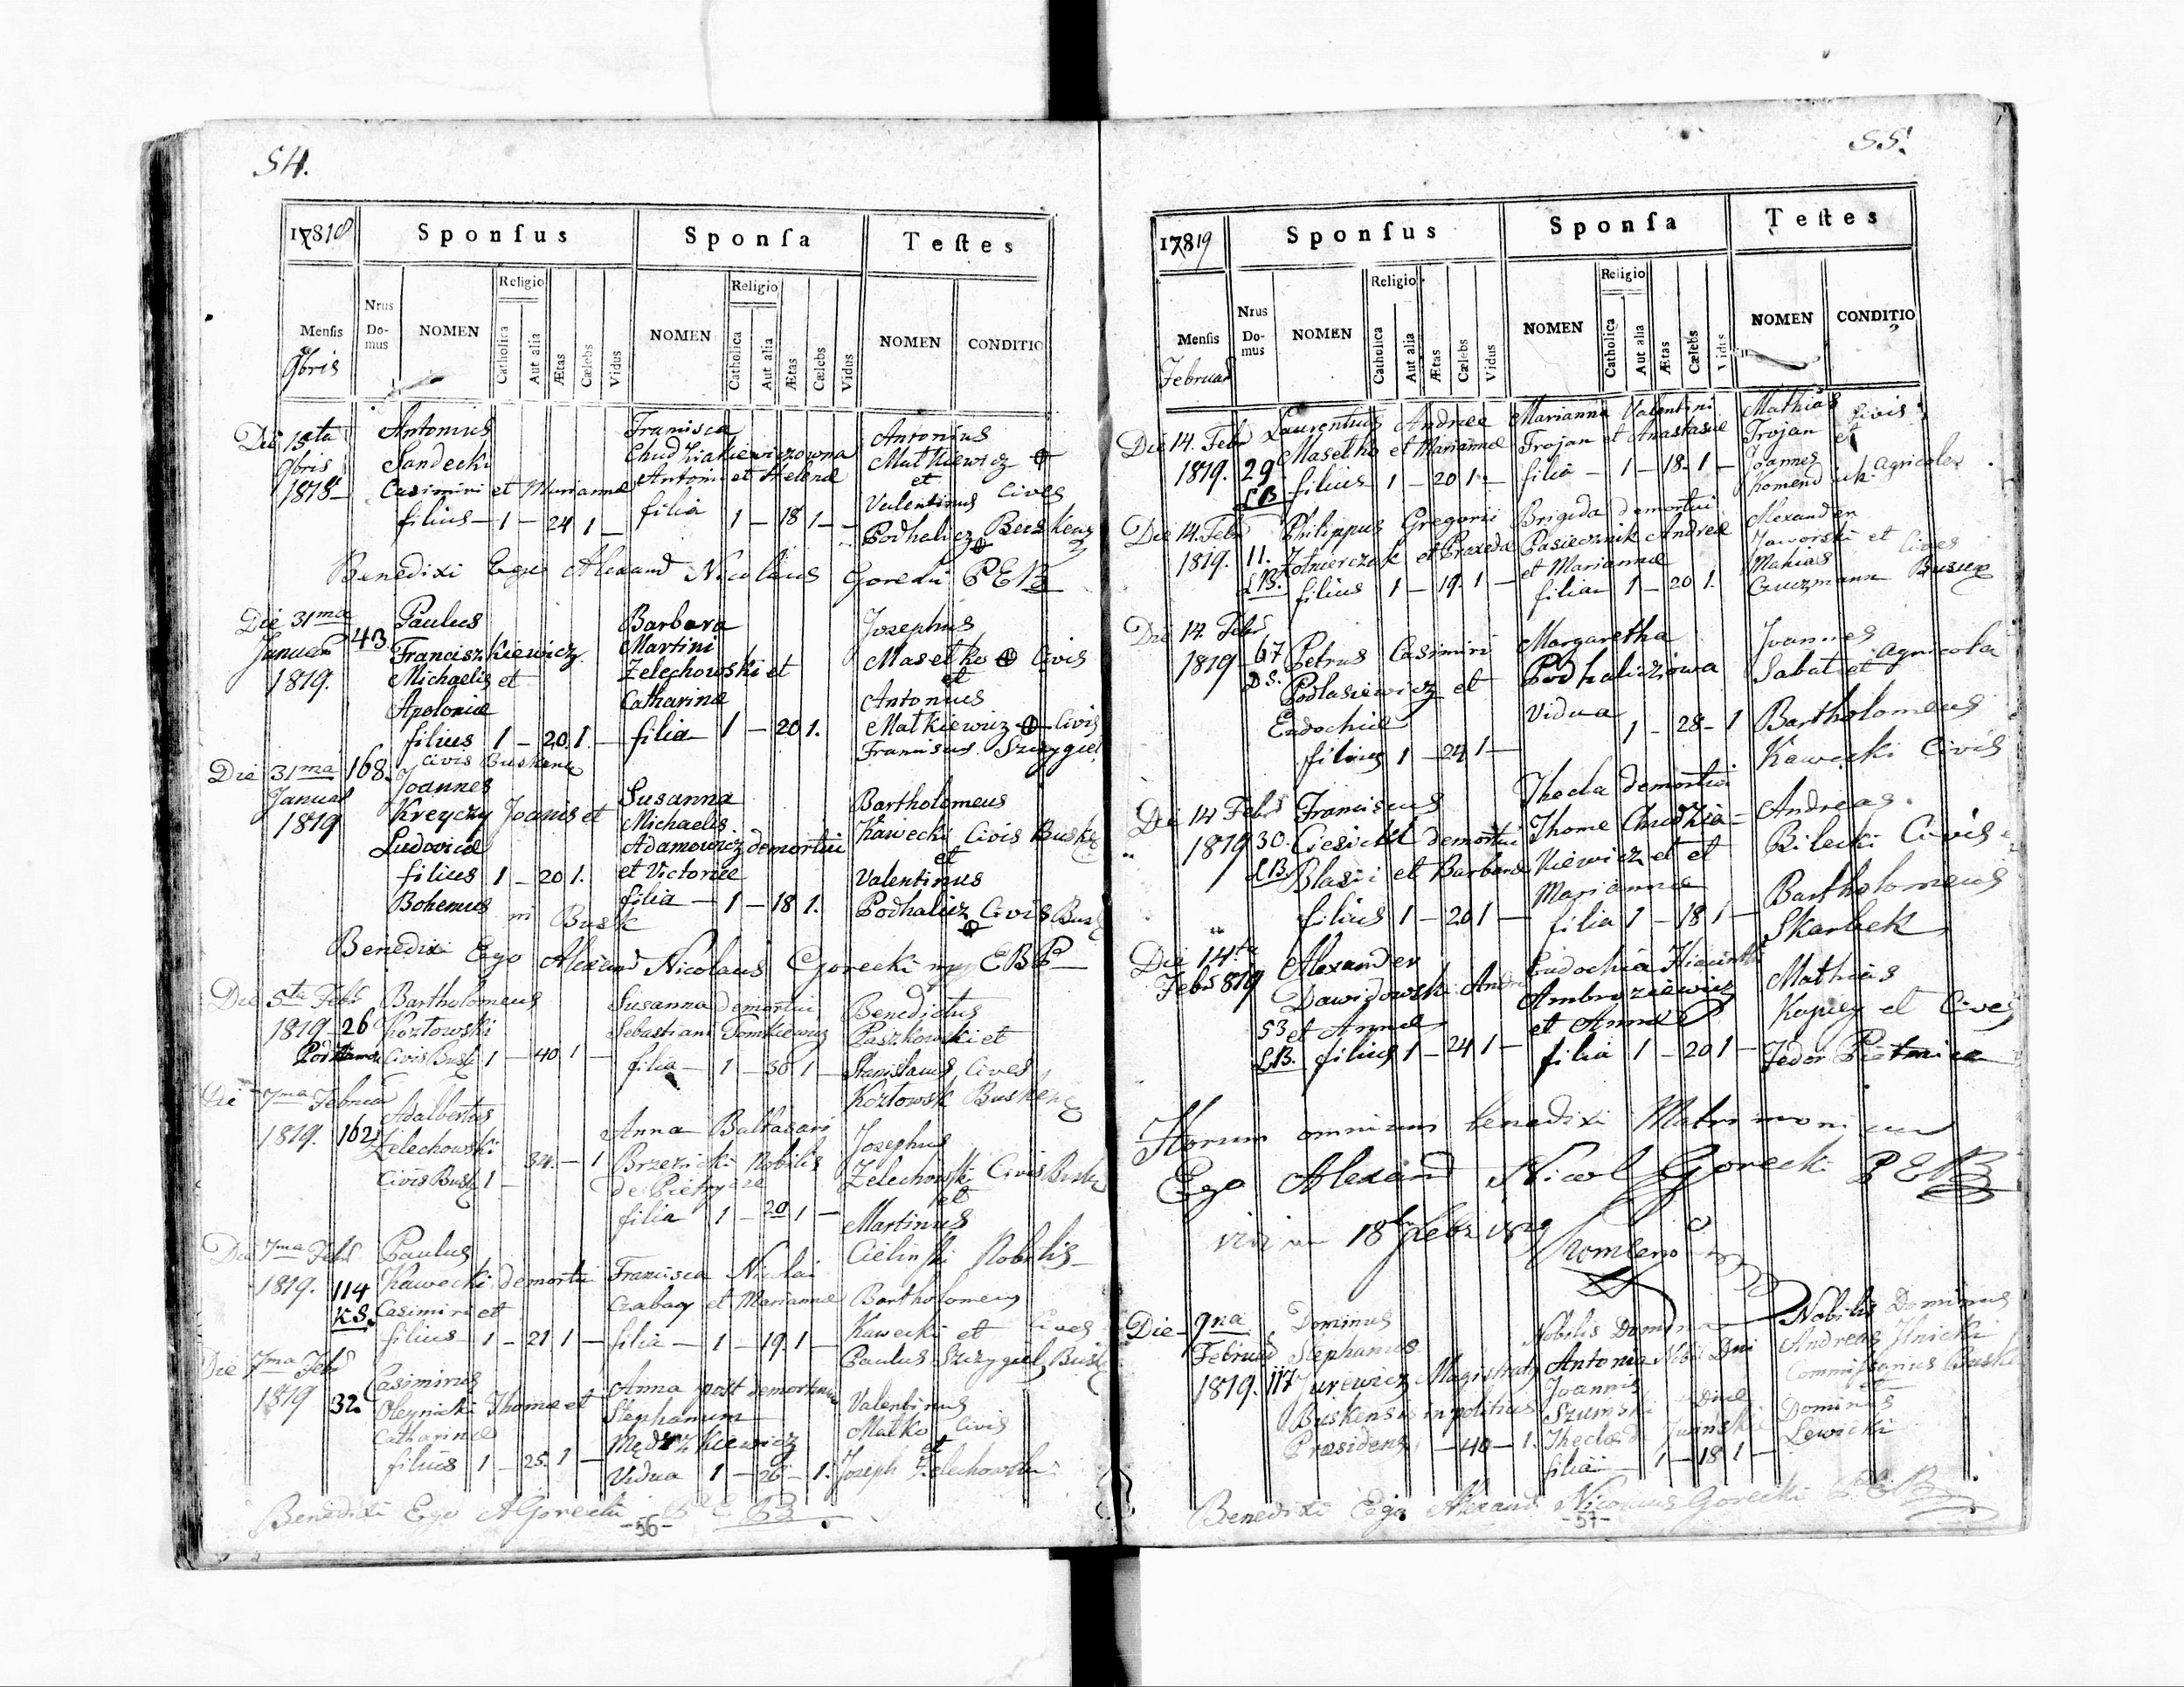 54.
17818
Sponſus
Sponſa
Teſtes
Menſis
9bris
Nrus Do-mus
NOMEN
Religio
Catholica
Aut alia
Ætas
Cælebs
Vidus
NOMEN
Religio
Catholica
Aut alia
Ætas
Cælebs
Vidus
NOMEN
CONDITIO
Die 15ta 9bris 1818
Antonius
Sandecki
Casimiri et Mariannae
filius 1 — 24 1 —
Francisca
Chudzikiewiczowna
Antoni et Helenae
filia 1 — 18 1 —
Antonius
Matkiewicz
et
Valentinus Cives
Podhalicz
Benedixi Ego Alexand Nicolaus Gorecki P E B
Die 31ma Januar 1819. 43
Paulus
Franciszkiewicz
Michaelis et
Apoloniae
filius 1 — 20 1. —
Civis Buskens
Barbara
Martini
Zelechowski et
Catharinae
filia 1 — 20 1.
Josephus
Masełko Civis
et
Antonius
Matkiewicz Civis
Franciscus Szczygieł
Die 31ma Januar 1819 168.
Joannes
Kreyczy Joanis et
Ludovicae
filius 1 — 20 1.
Bohemus in Busk
Susanna
Michaelis
Adamowicz demortui
et Victoriae
filia — 1 — 18 1.
Bartholomeus
Kawecki Civis Busk
et
Valentinus
Podhalicz Civis Busk
Benedixi Ego Alexand Nicolaus Gorecki mp E B P
Die 5ta Febr 1819 26
Bartholomeus
Kozłowski
Civis Busk 1 — 40 1 —
Susanna demortui
Sebastiani Tomkiewicz
filia — 1 — 30 1 —
Benedictus
Paszkowski et
Stanislaus Cives
Kozłowsk Buskens
Die 7ma Februar 1819. 162
Adalbertus
Zelechowski
Civis Busk 1 — 34. — 1
Anna Baltasari
Brzezicki Nobilis
filia 1 — 20 1 —
Josephus
Zelechowski Civis Busk
et
Martinus
Cielinski Nobilis
Die 7ma Febr 1819. 114
K.S.
Paulus
Kawecki demortui
Casimiri et
filius 1 — 21 1 —
Francisca Nicolai
Czabay et Mariannae
filia — 1 — 19. 1 —
Bartholomeus
Kawecki et Cives
Paulus Szczygieł Busk
Die 7ma Febr 1819 32.
Casimirus
Oleynicki Thomae et
Catharinae
filius 1 — 25. 1 —
Anna post demortuum
Stephanum
Vidua 1 — 26 — 1.
Valentinus
Matko Civis
et
Joseph Zelechowski
Benedixi Ego A Gorecki
-56-
55.
17819
Sponſus
Sponſa
Teſtes
Menſis
Februar
Nrus Do-mus
NOMEN
Religio
Catholica
Aut alia
Ætas
Cælebs
Vidus
NOMEN
Religio
Catholica
Aut alia
Ætas
Cælebs
Vidus
NOMEN
CONDITIO
Die 14. Febr 1819. 29
LB
Laurentius Andreae
Masełko et Mariannae
filius 1 — 20 1. —
Marianna Valentini
Trojan et Anastasiae
filia — 1 — 18 1 —
Mathias Civis
Trojan et
Joannes Agricolae
Die 14. Febr 1819. 11.
LB.
Philippus Gregorii
Żołnierczak et Praxedae
filius 1 — 19. 1 —
Brigida demortui
Pasiecznik Andreae
et Mariannae
filia 1 — 20 1.
Alexander
Jaworski et Cives
Mathias
Die 14 Febr 1819 67
DS.
Petrus Casimiri
Podlasiewicz et
Eudochiae
filius 1 — 24 1 —
Margaretha
Podhaliczowa
Vidua 1 — 28 — 1
Joannes
Sabat et Agricola
Bartholomeus
Kawecki Civis
Die 14 Febr 1819 30.
LB.
Franciscus
Ciesicki demortui
Blasii et Barbarae
filius 1 — 20 1 —
Thecla demortui
Thome Chudzia=
kiewicz et et
Mariannae
filia 1 — 18 1 —
Andreas
Bilecki Civis
Bartholomeus
Skarbek
Die 14ta Febr 819 53
LB.
Alexander
Dawidowski Andr
et Annae
filius 1 — 24 1 —
Eudochia Hiacinthi
Ambroziewicz
et Annae
filia 1 — 20 1 —
Mathias
et Cives
Fedor
Horum omnium benedixi Matrimonium
Ego Alexand Nicol Gorecki P E B
18 Febr 1819
Die 9na Februar 1819. 117
Dominus
Stephanus
Jurewicz Magistratus
Buskensis in politicis
Praesidens — 40 — 1.
Nobilis Domina
Antonia Nob. Dni
Joannis
Szumski
filia — 1 — 18 1 —
Nobilis Dominus
Andreas Ilnicki
Commissarius Busk
et
Dominus
Lewicki
Benedixi Ego Alexand Nicolaus Gorecki
-57-